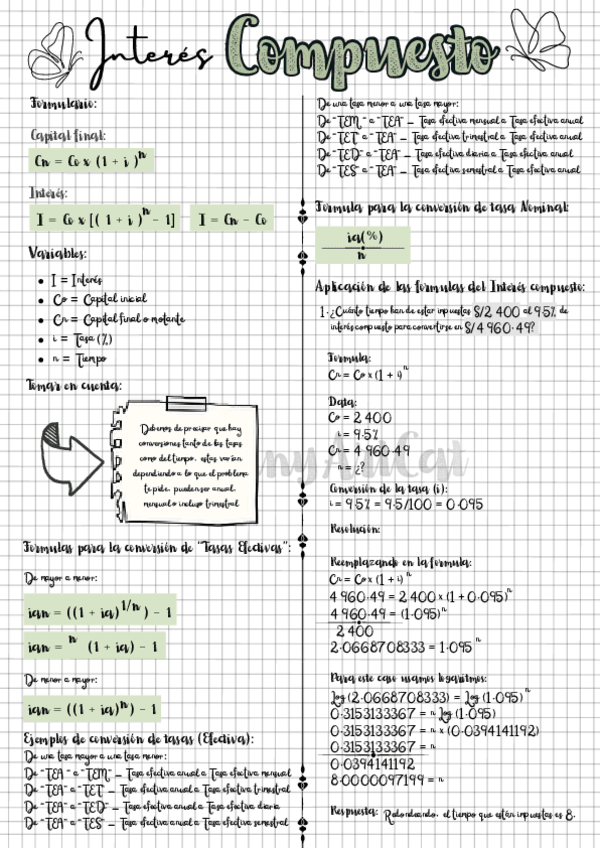 Interés Compuesto
Formulario:
Capital final:
Cn = Co x (1 + i )^n
Interés:
I = Co x [( 1 + i )^n - 1]
I = Cn - Co
Variables:
• I = Interés
• Co = Capital inicial
• Cn = Capital final o motante
• i = Tasa (%)
• n = Tiempo
Tomar en cuenta:
Debemos de precisar que hay
conversiones tanto de las tasas
como del tiempo, estas varían
dependiendo a lo que el problema
te pide, pueden ser anual,
mensual o incluso trimestral
Formulas para la conversión de "Tasas Efectivas":
De mayor a menor:
ian = ((1 + ia)^1/n ) - 1
ian = ^n (1 + ia) - 1
De menor a mayor:
ian = ((1 + ia)^n ) - 1
Ejemplos de conversión de tasas (Efectiva):
De una tasa mayor a una tasa menor:
De "TEA" a "TEM" – Tasa efectiva anual a Tasa efectiva mensual
De "TEA" a "TET" – Tasa efectiva anual a Tasa efectiva trimestral
De "TEA" a "TED" – Tasa efectiva anual a Tasa efectiva diaria
De "TEA" a "TES" – Tasa efectiva anual a Tasa efectiva semestral
De una tasa menor a una tasa mayor:
De "TEM" a "TEA" – Tasa efectiva mensual a Tasa efectiva anual
De "TET" a "TEA" – Tasa efectiva trimestral a Tasa efectiva anual
De "TED" a "TEA" – Tasa efectiva diaria a Tasa efectiva anual
De "TES" a "TEA" – Tasa efectiva semestral a Tasa efectiva anual
Formula para la conversión de tasa Nominal:
ia(%)
n
Aplicación de las formulas del Interés compuesto:
1. ¿Cuánto tiempo han de estar impuestas S/2 400 al 9.5% de
interés compuesto para convertirse en S/4 960.49?
Formula:
Cn = Co x (1 + i)^n
Data:
Co = 2 400
i = 9.5%
Cn = 4 960.49
n = ¿?
Conversión de la tasa (i):
i = 9.5% = 9.5/100 = 0.095
Resolución:
Reemplazando en la formula:
Cn = Co x (1 + i)^n
4 960.49 = 2 400 x (1 + 0.095)^n
4 960.49 = (1.095)^n
2 400
2.0668708333 = 1.095^n
Para este caso usamos logaritmos:
Log (2.0668708333) = Log (1.095)^n
0.3153133367 = n Log (1.095)
0.3153133367 = n x (0.0394141192)
0.3153133367 = n
0.0394141192
8.0000097199 = n
Respuesta: Redondeando, el tiempo que están impuestas es 8.